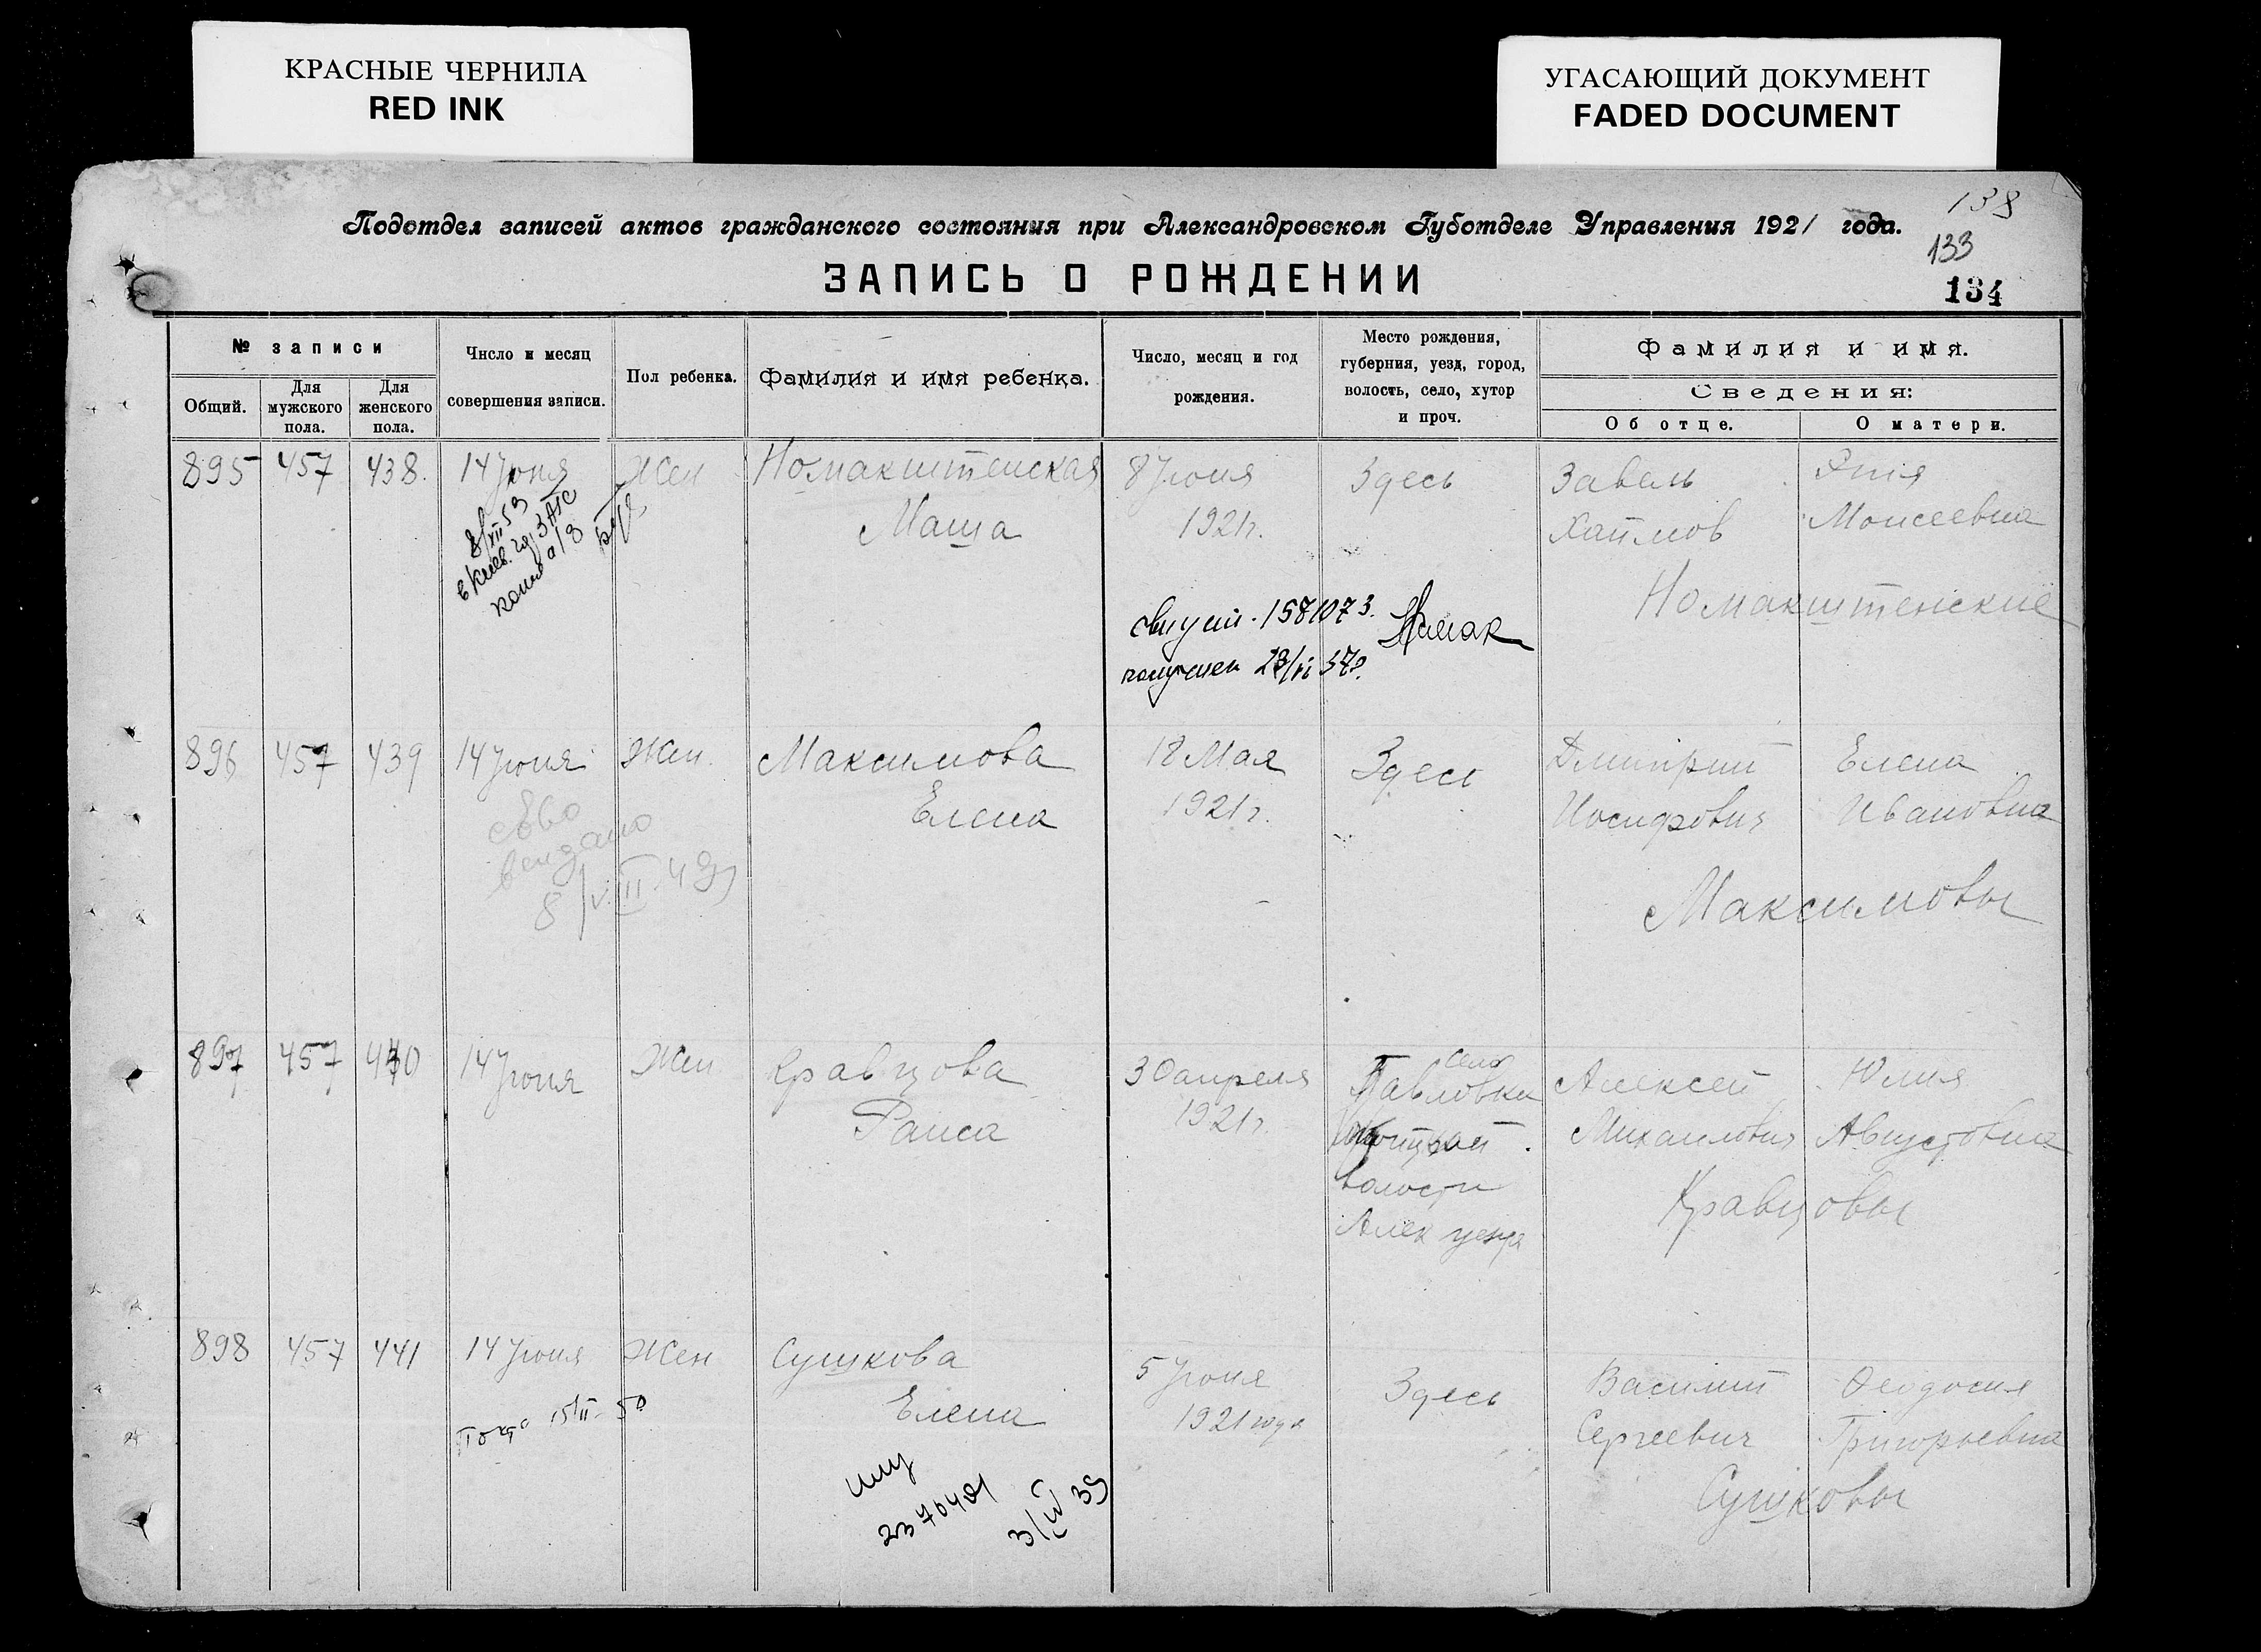 КРАСНЫЕ ЧЕРНИЛА
RED INK
УГАСАЮЩИЙ ДОКУМЕНТ
FADED DOCUMENT
138
Подотдел записей актов гражданского состояния при Александровском Губотделе Управления 1921 года.
133
ЗАПИСЬ О РОЖДЕНИИ
134
№ записи
Общий.
Для мужского пола.
Для женского пола.
Число и месяц совершения записи.
Пол ребенка.
Фамилия и имя ребенка.
Число, месяц и год рождения.
Место рождения, губерния, уезд, город, волость, село, хутор и проч.
Фамилия и имя.
Сведения:
Об отце.
О матери.
895 457 438. 14 Июня Жен Номакштенская 8 Июня Здесь Завель
Маша 1921г. Хаимов Моисеевна
8/XII 53
Номакштенские
1581073.
896 457 439 14 Июня Жен. Максимова 18 Мая Здесь Дмитрий Елена
Елена 1921г. Иосифович Ивановна
8/VIII 49
Максимовы
897 457 440 14 Июня Жен Кравцова 30 апреля село Алексей Юлия
Раиса 1921г. Павловка Михаилович Августовна
волости
Алек уезда
Кравцовы
898 457 441 14 Июня Жен Сушкова 5 Июня Здесь Василий Феодосия
Елена 1921 года Сергеевич Григорьевна
15/II-50
Сушковы
3/IV 39